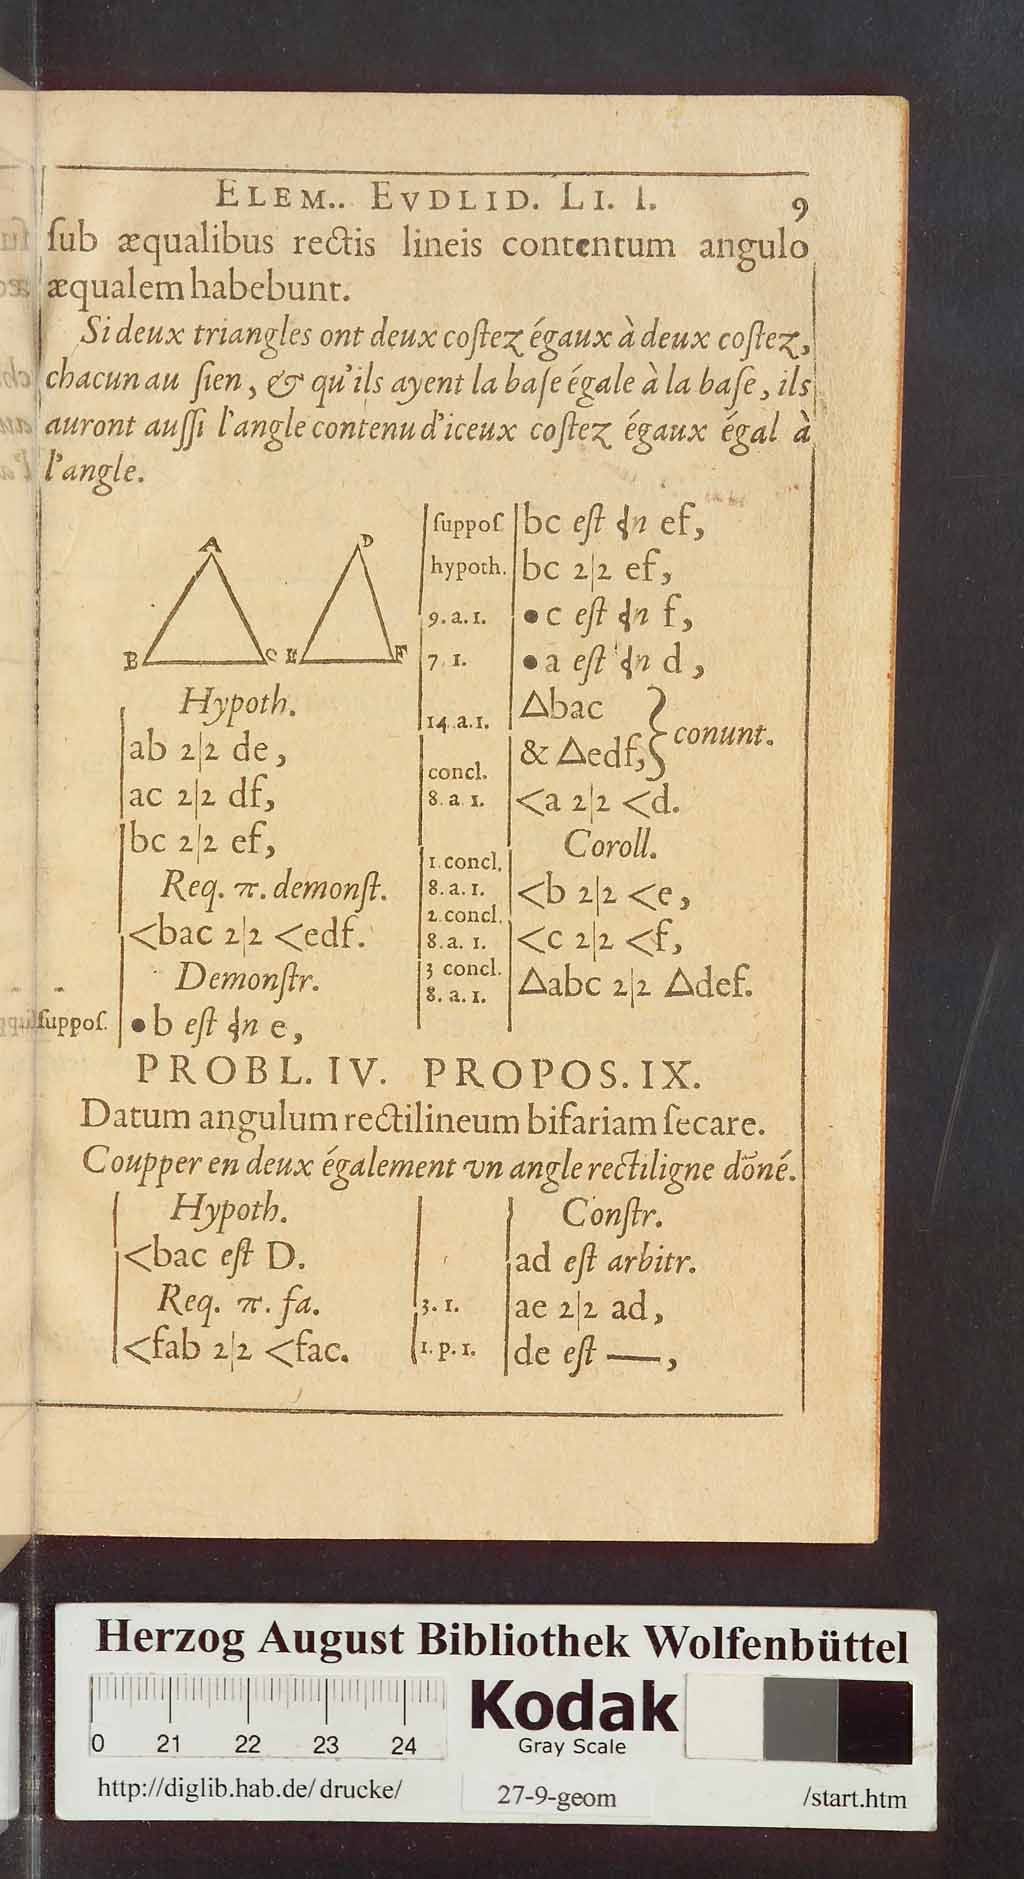 ELEM.. EVDLID. LI. I. 9
ſub æqualibus rectis lineis contentum angulo
æqualem habebunt.
Si deux triangles ont deux coſtez égaux à deux coſtez,
chacun au ſien, & qu'ils ayent la baſe égale à la baſe, ils
auront auſſi l'angle contenu d'iceux coſtez égaux égal à
l'angle.
A D
B C E F
Hypoth.
ab 2|2 de,
ac 2|2 df,
bc 2|2 ef,
Req. π. demonſt.
<bac 2|2 <edf.
Demonſtr.
ſuppoſ. •b eſt n e,
ſuppoſ bc eſt n ef,
hypoth. bc 2|2 ef,
9. a. 1. •c eſt n f,
7. 1. •a eſt n d,
14. a. 1. △bac
& △edf, } conunt.
concl.
8. a. 1. <a 2|2 <d.
Coroll.
1. concl.
8. a. 1. <b 2|2 <e,
2. concl.
8. a. 1. <c 2|2 <f,
3 concl.
8. a. 1. △abc 2|2 △def.
PROBL. IV. PROPOS. IX.
Datum angulum rectilineum bifariam ſecare.
Coupper en deux également vn angle rectiligne dõné.
Hypoth.
<bac eſt D.
Req. π. fa.
<fab 2|2 <fac.
Conſtr.
ad eſt arbitr.
3. 1. ae 2|2 ad,
1. p. 1. de eſt —,
Herzog August Bibliothek Wolfenbüttel
0 21 22 23 24
Kodak
Gray Scale
http://diglib.hab.de/drucke/ 27-9-geom /start.htm